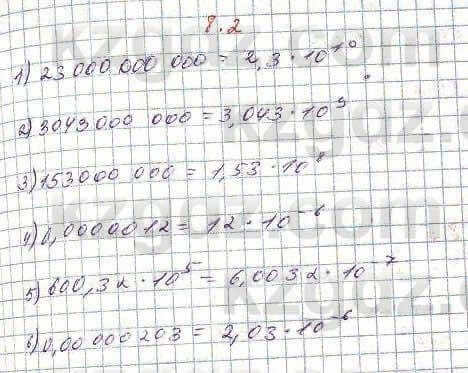 8.2
1) 23 000 000 000 = 2,3 · 10¹⁰
2) 3043 000 000 = 3,043 · 10⁹
3) 153000 000 = 1,53 · 10⁸
4) 0,0000012 = 12 · 10⁻⁶
5) 600,32 · 10⁵ = 6,0032 · 10⁻⁷
6) 0,00 000 203 = 2,03 · 10⁻⁶